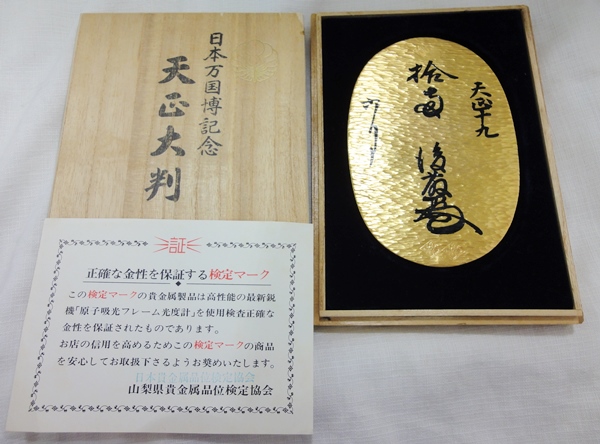 日本万国博記念
天正大判
天正十九
拾両 後藤
証
正確な金性を保証する検定マーク
この検定マークの貴金属製品は高性能の最新鋭
機「原子吸光フレーム光度計」を使用検査正確な
金性を保証されたものであります。
お店の信用を高めるためこの検定マークの商品
を安心してお取扱下さるようお奨めいたします。
山梨県貴金属品位検定協会